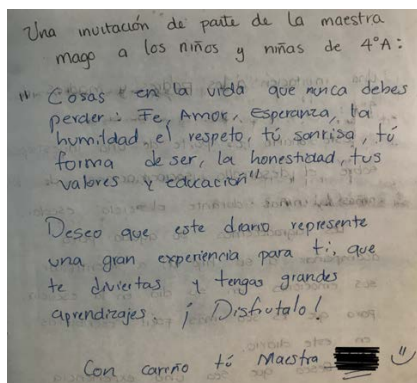 Una invitación de parte de la maestra
mago a los niños y niñas de 4°A:
"Cosas en la vida que nunca debes
perder: Fe, Amor, Esperanza, la
humildad, el respeto, tú sonrisa, tú
forma de ser, la honestidad, tus
valores y educación"
Deseo que este diario represente
una gran experiencia para ti, que
te diviertas y tengas grandes
aprendizajes. ¡Disfrutalo!
Con cariño tú Maestra